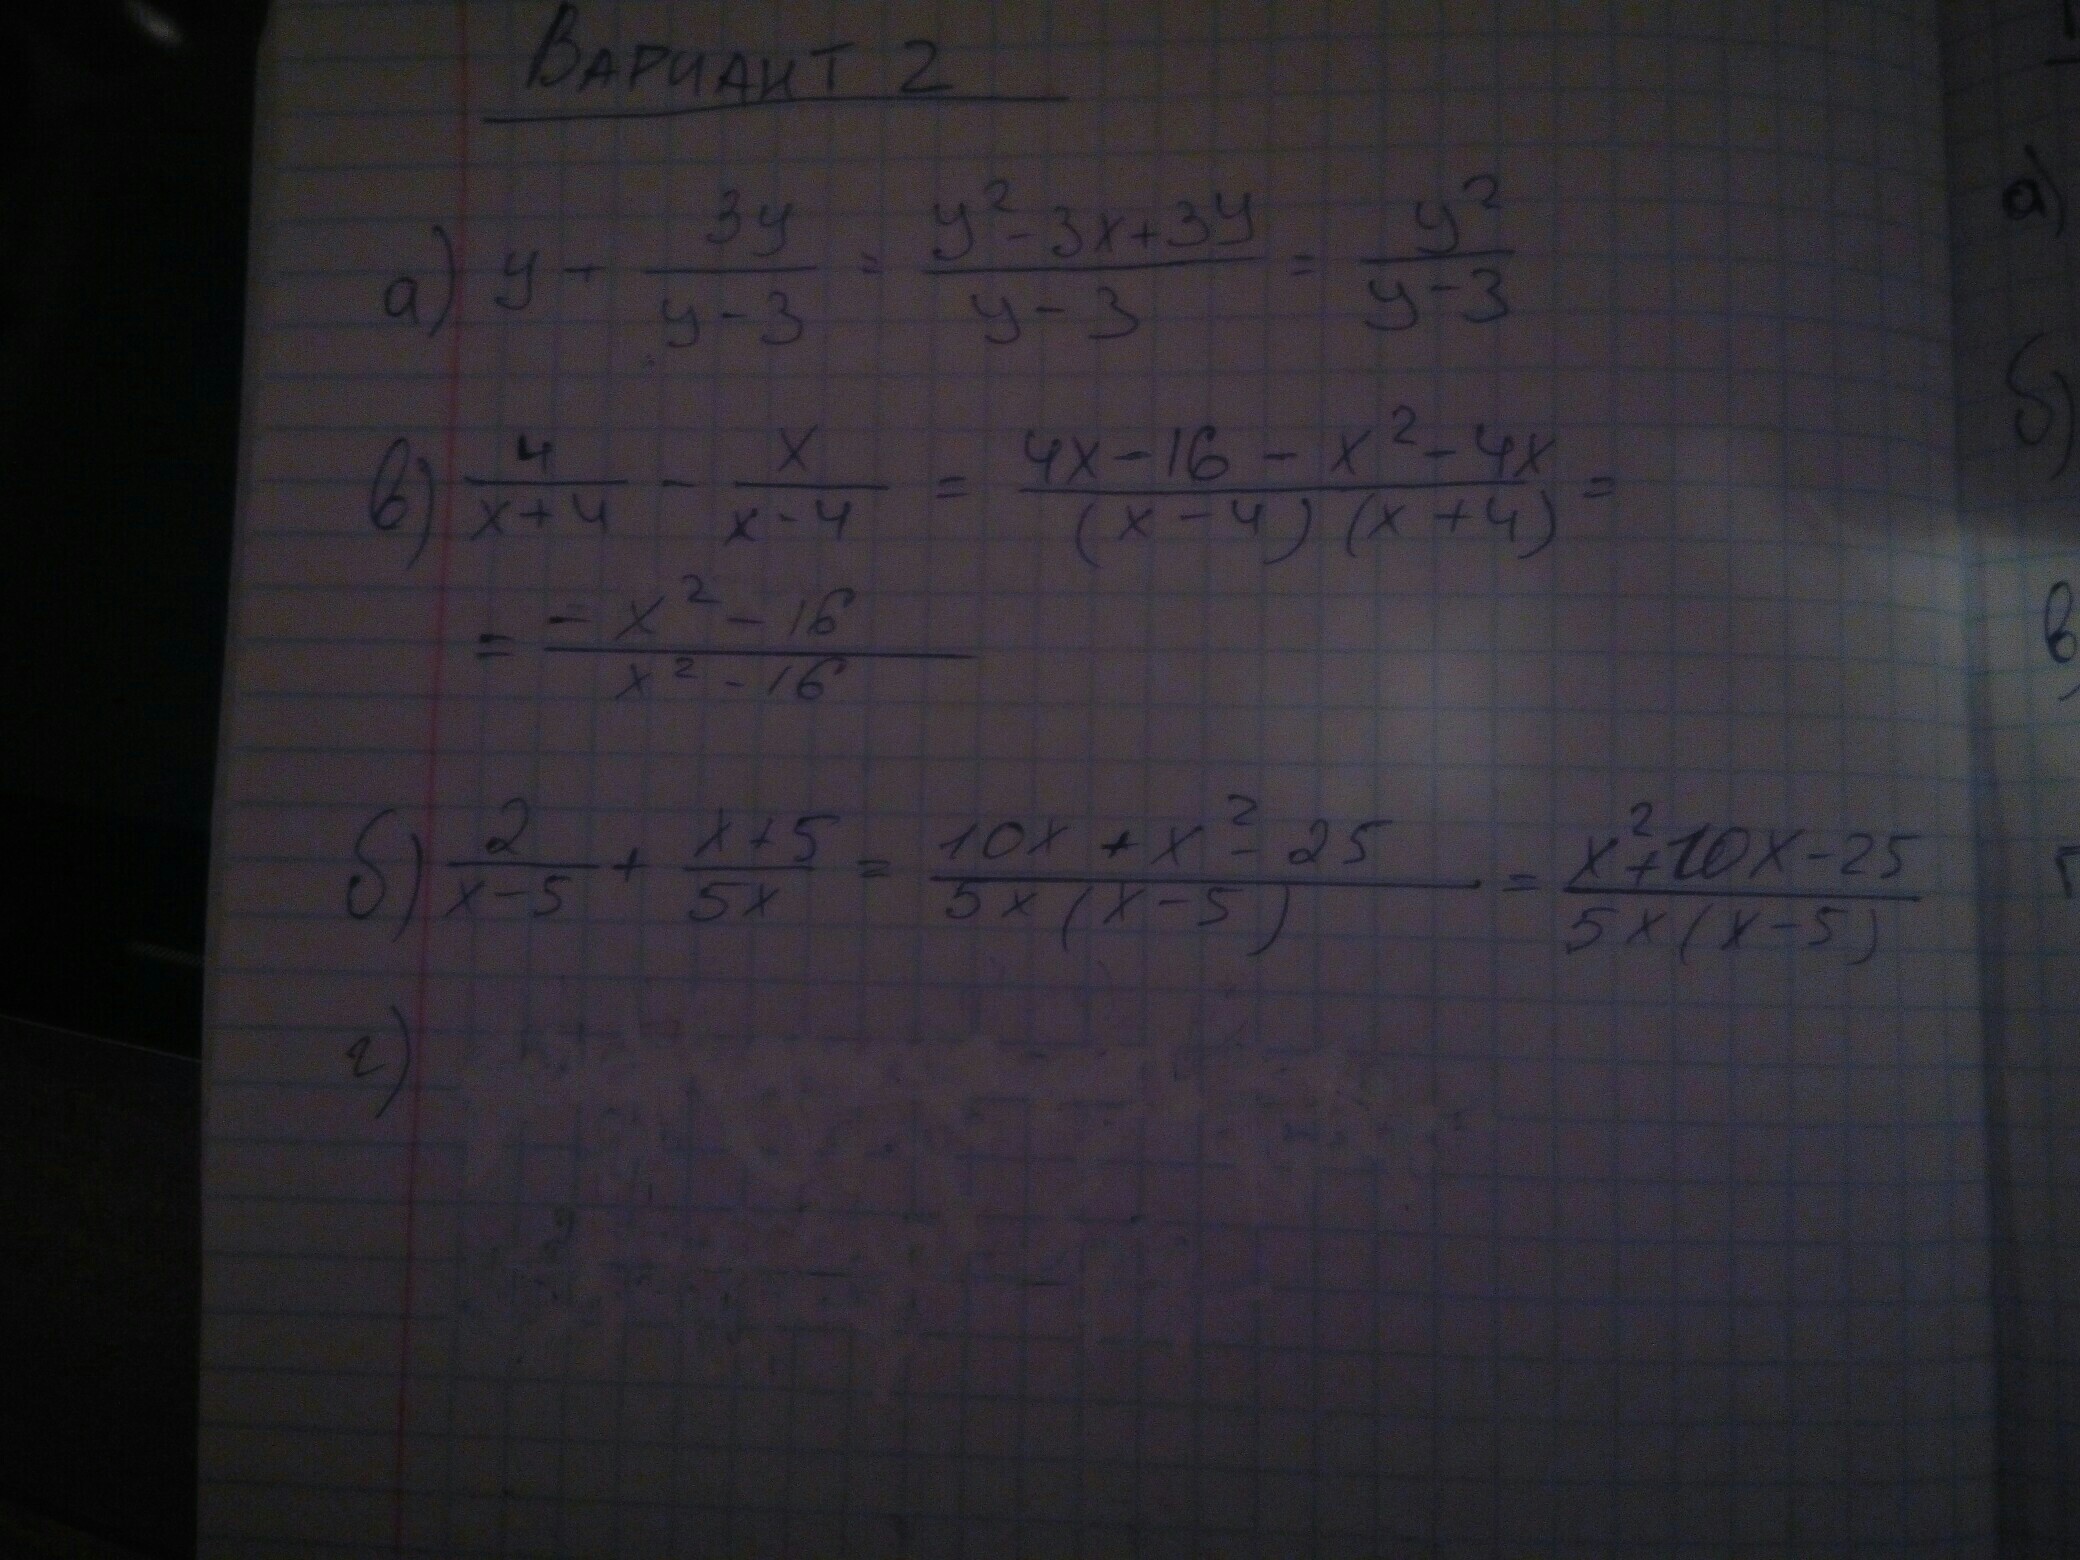 Вариант 2
а) y + 3y / y - 3 = y² - 3x + 3y / y - 3 = y² / y - 3
в) 4 / x + 4 - x / x - 4 = 4x - 16 - x² - 4x / (x - 4)(x + 4) =
= - x² - 16 / x² - 16
б) 2 / x - 5 + x + 5 / 5x = 10x + x² - 25 / 5x(x - 5) = x² + 10x - 25 / 5x(x - 5)
г)
а)
б)
в)